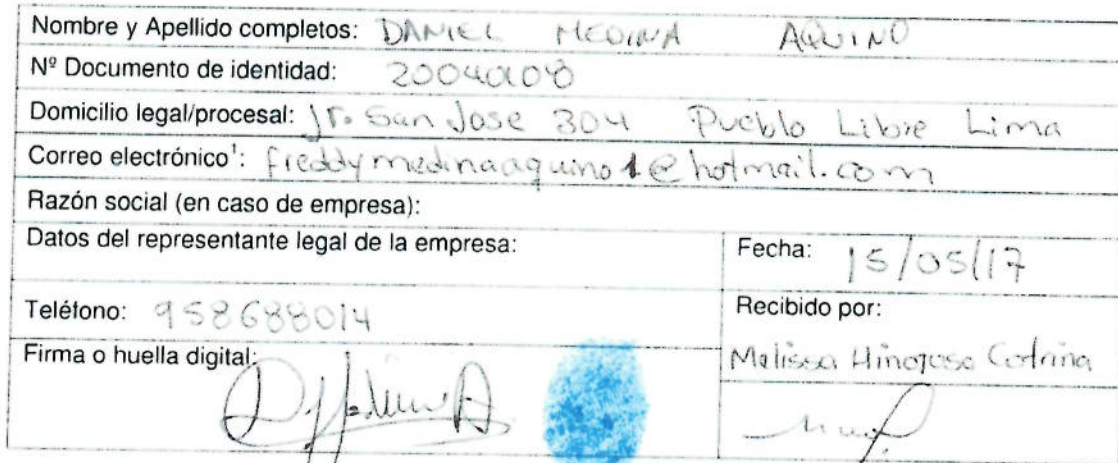 Nombre y Apellido completos: DANIEL MEDINA AQUINO
Nº Documento de identidad:
Domicilio legal/procesal: Jr. San Jose 304 Pueblo Libre Lima
Correo electrónico¹: freddymedinaaquino1@hotmail.com
Razón social (en caso de empresa):
Datos del representante legal de la empresa:
Fecha: 15/05/17
Teléfono: 958688014
Recibido por:
Firma o huella digital:
Melissa Hinojosa Cotrina